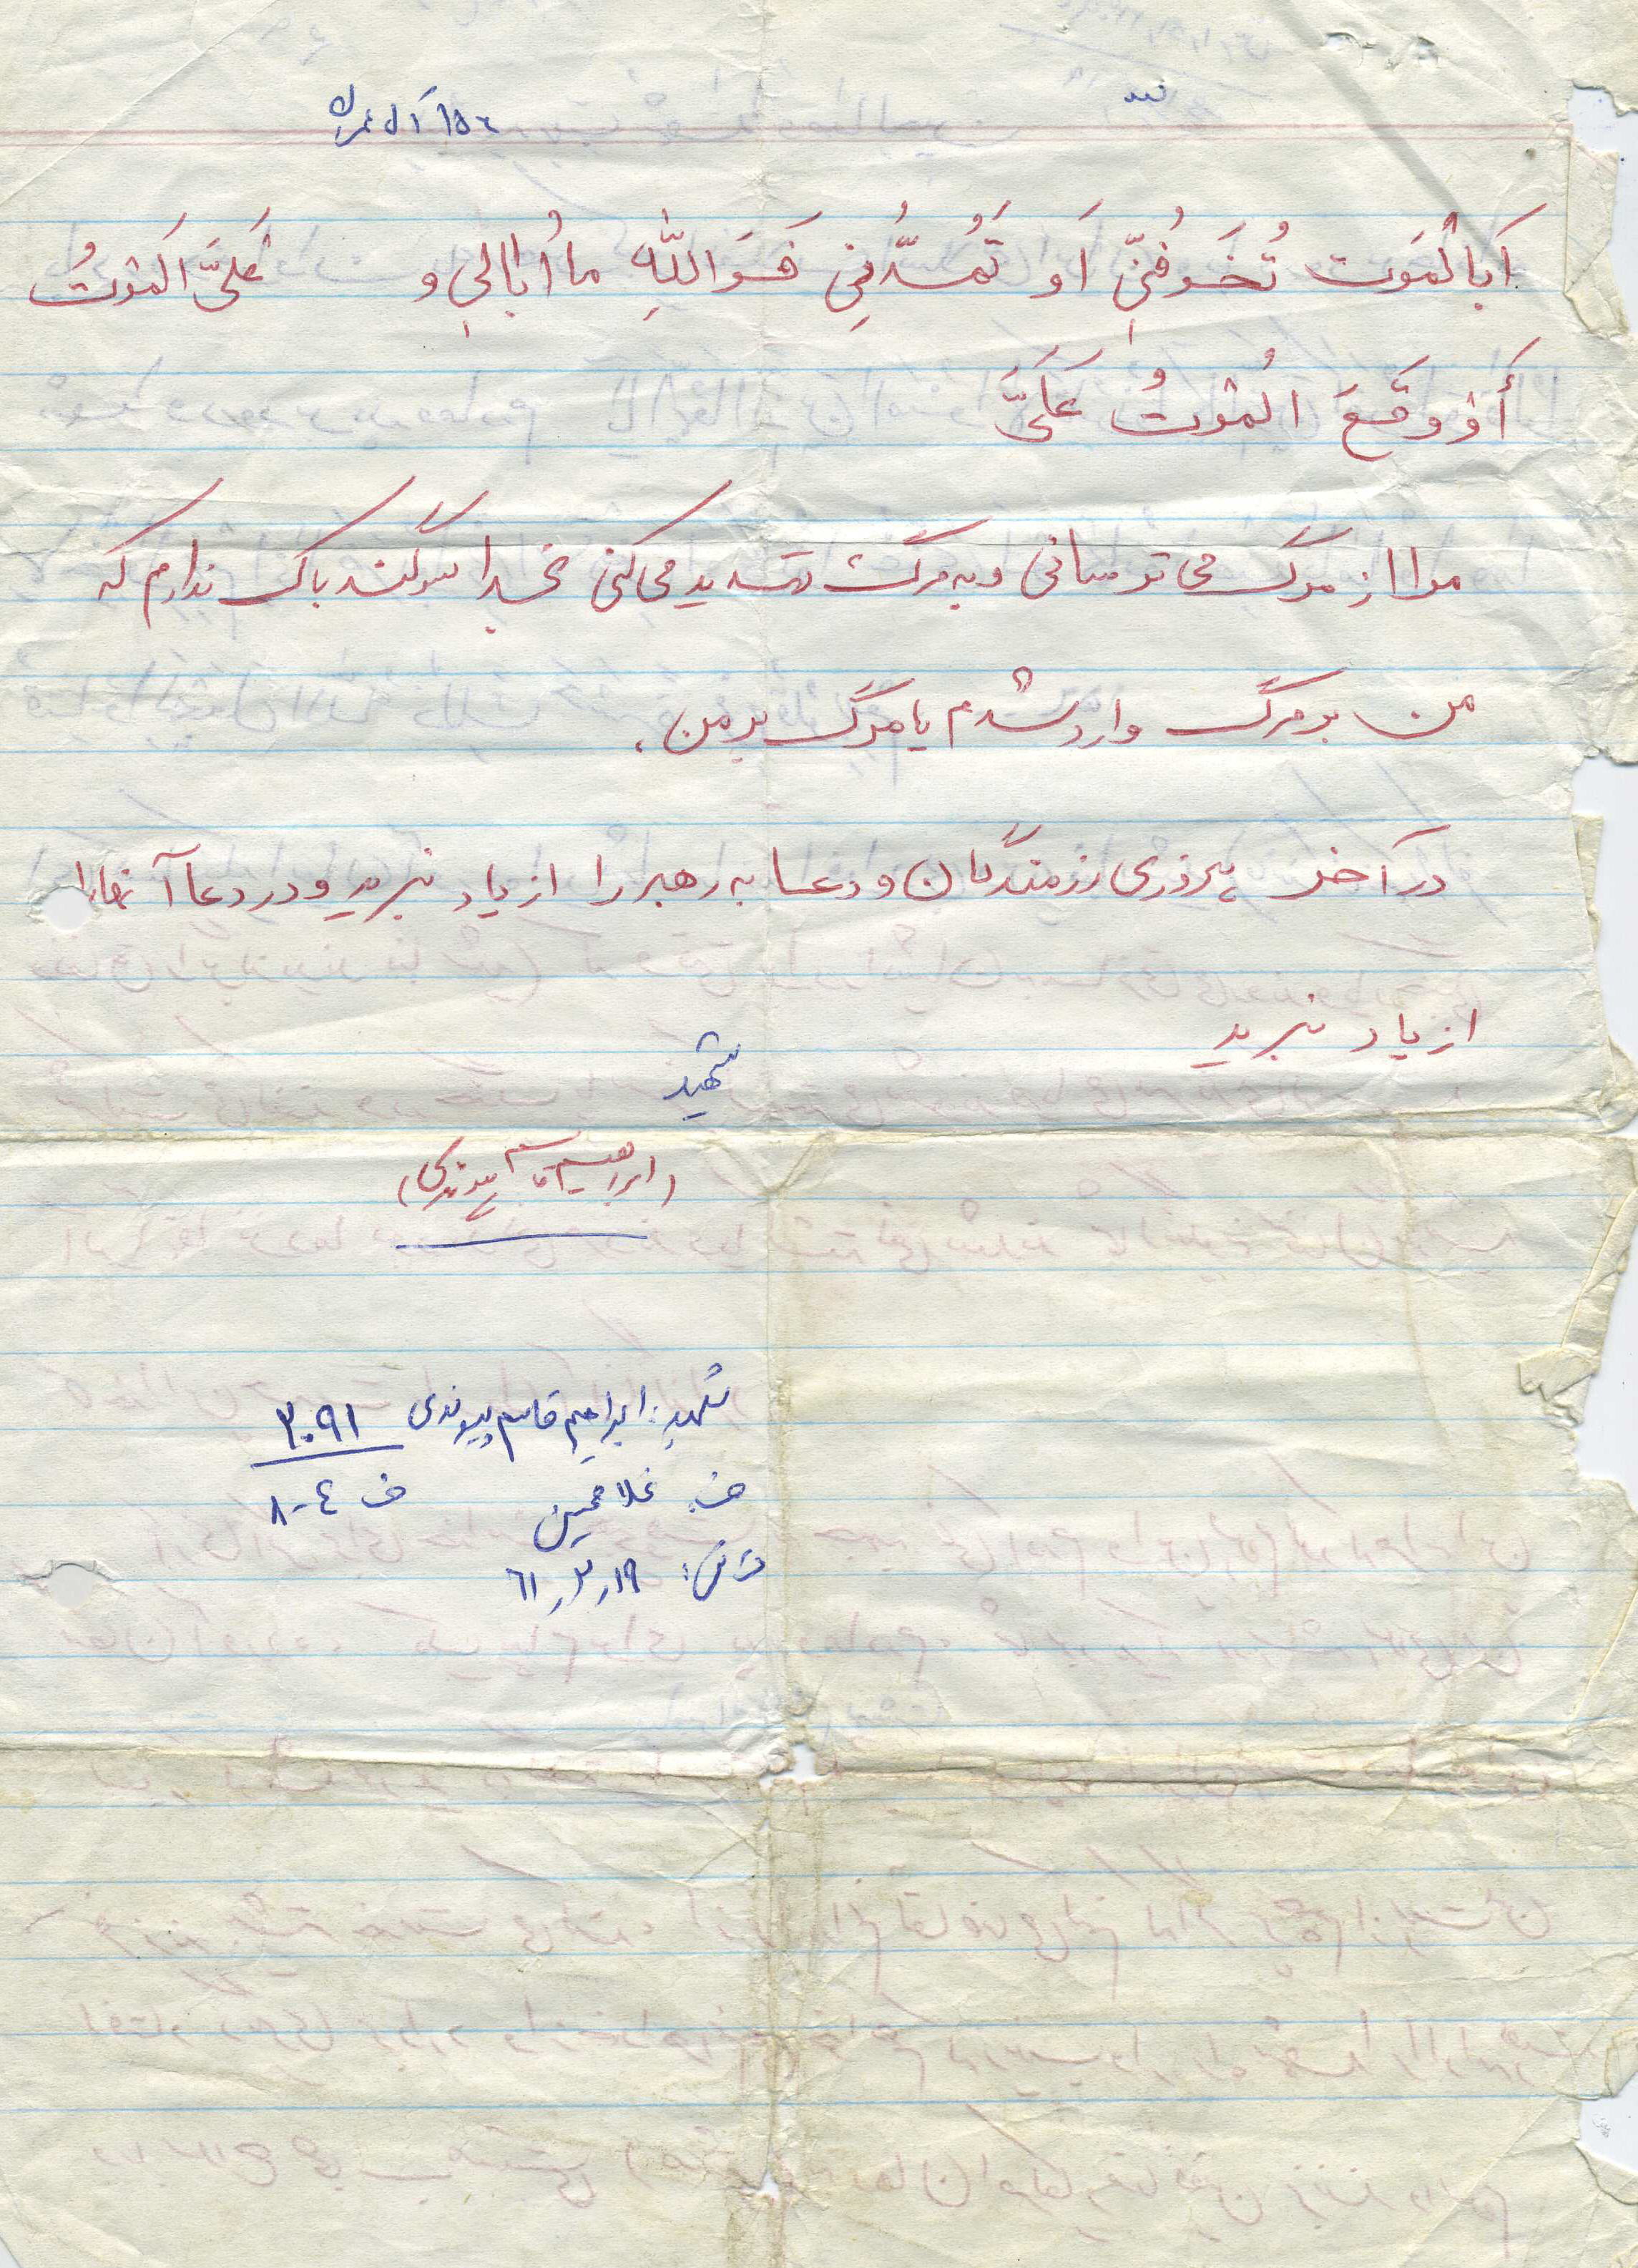 ۱۵۶ آل عمران
اَبِالْمَوت تُخَوِفُنّی اَو تَهُدّدُنِی فَوَاللهِ ما اُبالی و عَلیَّ اَلمَوتُ
أَوْ وَقَعَ المْوتُ عَلَیَّ
مرا از مرگ می ترسانی و به مرگ تهدید می کنی بخدا سوگند باک ندارم که
من بر مرگ وارد شدم یا مرگ بر من.
در آخر پیروزی رزمندگان و دعا به رهبر را از یاد نبرید و در دعا آنها را
از یاد نبرید
شهید
(ابراهیم قاسم پیوندی)
شهید: ابراهیم قاسم پیوندی ۳۰۹۱
ف: غلامحسین ف ۴-۸
ت ش: ۶۱٫۳٫۱۹